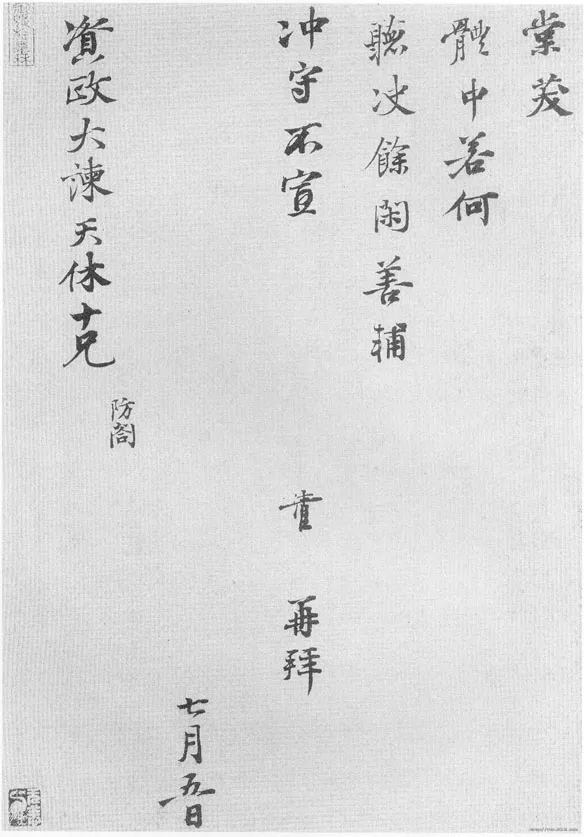 棠茇
體中若何
聽决餘閑善輔
冲守不宣
再拜
七月五日
防閤
資政大諫天休十兄